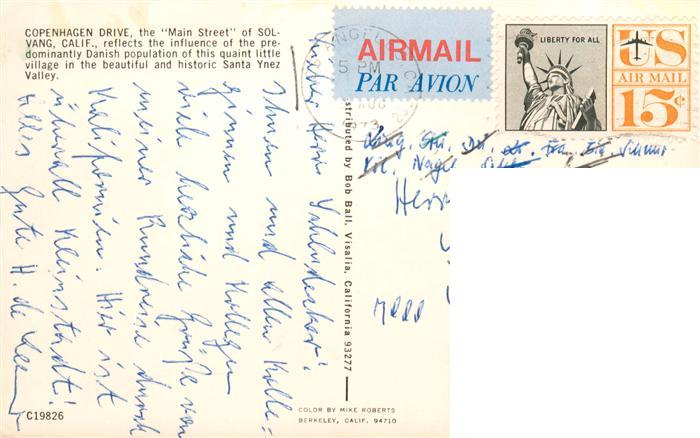 COPENHAGEN DRIVE, the "Main Street" of SOL-
VANG, CALIF., reflects the influence of the pre-
dominantly Danish population of this quaint little
village in the beautiful and historic Santa Ynez
Valley.
AIRMAIL
PAR AVION
5 PM
AUG
1973
LIBERTY FOR ALL
US
AIR MAIL
15¢
Lieber Herr
Ihnen und allen Kolle=
ginnen und Kollegen
viele herzliche Grüße von
meiner Rundreise durch
Kalifornien. Hier ist
überall Kleinstadt!
Alles Gute H. de
Distributed by Bob Ball, Visalia, California 93277
Herr
C19826
COLOR BY MIKE ROBERTS
BERKELEY, CALIF. 94710